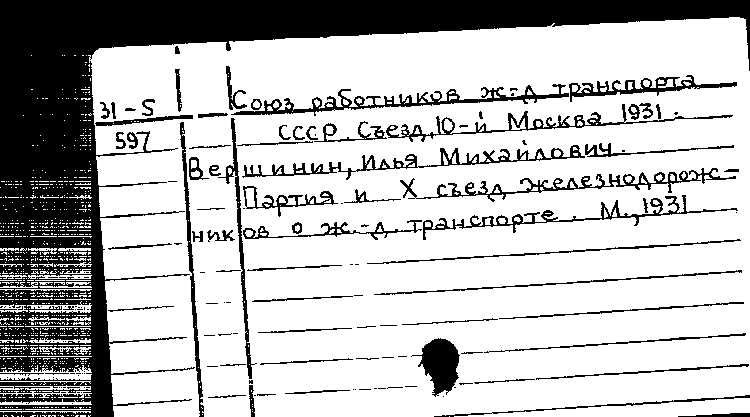 31-5 Союз работников ж-д транспорта
597 СССР. Съезд, 10-й Москва 1931.
Вершинин, Илья Михайлович.
Партия и X съезд железнодорож-
ников о ж.-д. транспорте. М., 1931.